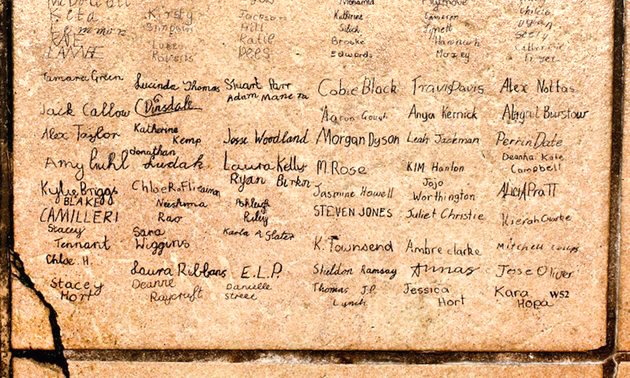 McDonald
Kirsty
Simpson
Luke
Katherine
Cameron
Jynett
Brooke
Hannah
Katie
Edwards
Tamara Green
Lucinda Thomas
Stuart Parr
Adam Mane
Cobie Black
Travis Davis
Alex Noftas
Jack Callow
C Dinsdale
Aaron Gough
Anya Kernick
Abigail Burstow
Alex Taylor
Katherine
Kemp
Jesse Woodland
Morgan Dyson
Leah Jackman
Perrin Date
Amy
Jonathan
Ludak
Laura Kelly
M Rose
KIM Hanlon
Deanna Kate
Campbell
Kylie Briggs
Chloe R.
Ryan
Jasmine Howell
Jojo
Worthington
Alicia Pratt
BLAKE
CAMILLERI
Neishma
Rao
Ashleigh
Riley
STEVEN JONES
Juliet Christie
Kierah Clarke
Stacey
Tennant
Sara
Wiggins
Karla A Slater
K. Townsend
Ambre clarke
Mitchell
Chloe H.
Laura Ribbans
E.L.P.
Sheldon Ramsay
Annas
Jose Oliver
Stacey
Hort
Deanne
Raycroft
Danielle
Street
Thomas J.P.
Lynch
Jessica
Hort
Kara
Hopa
W52